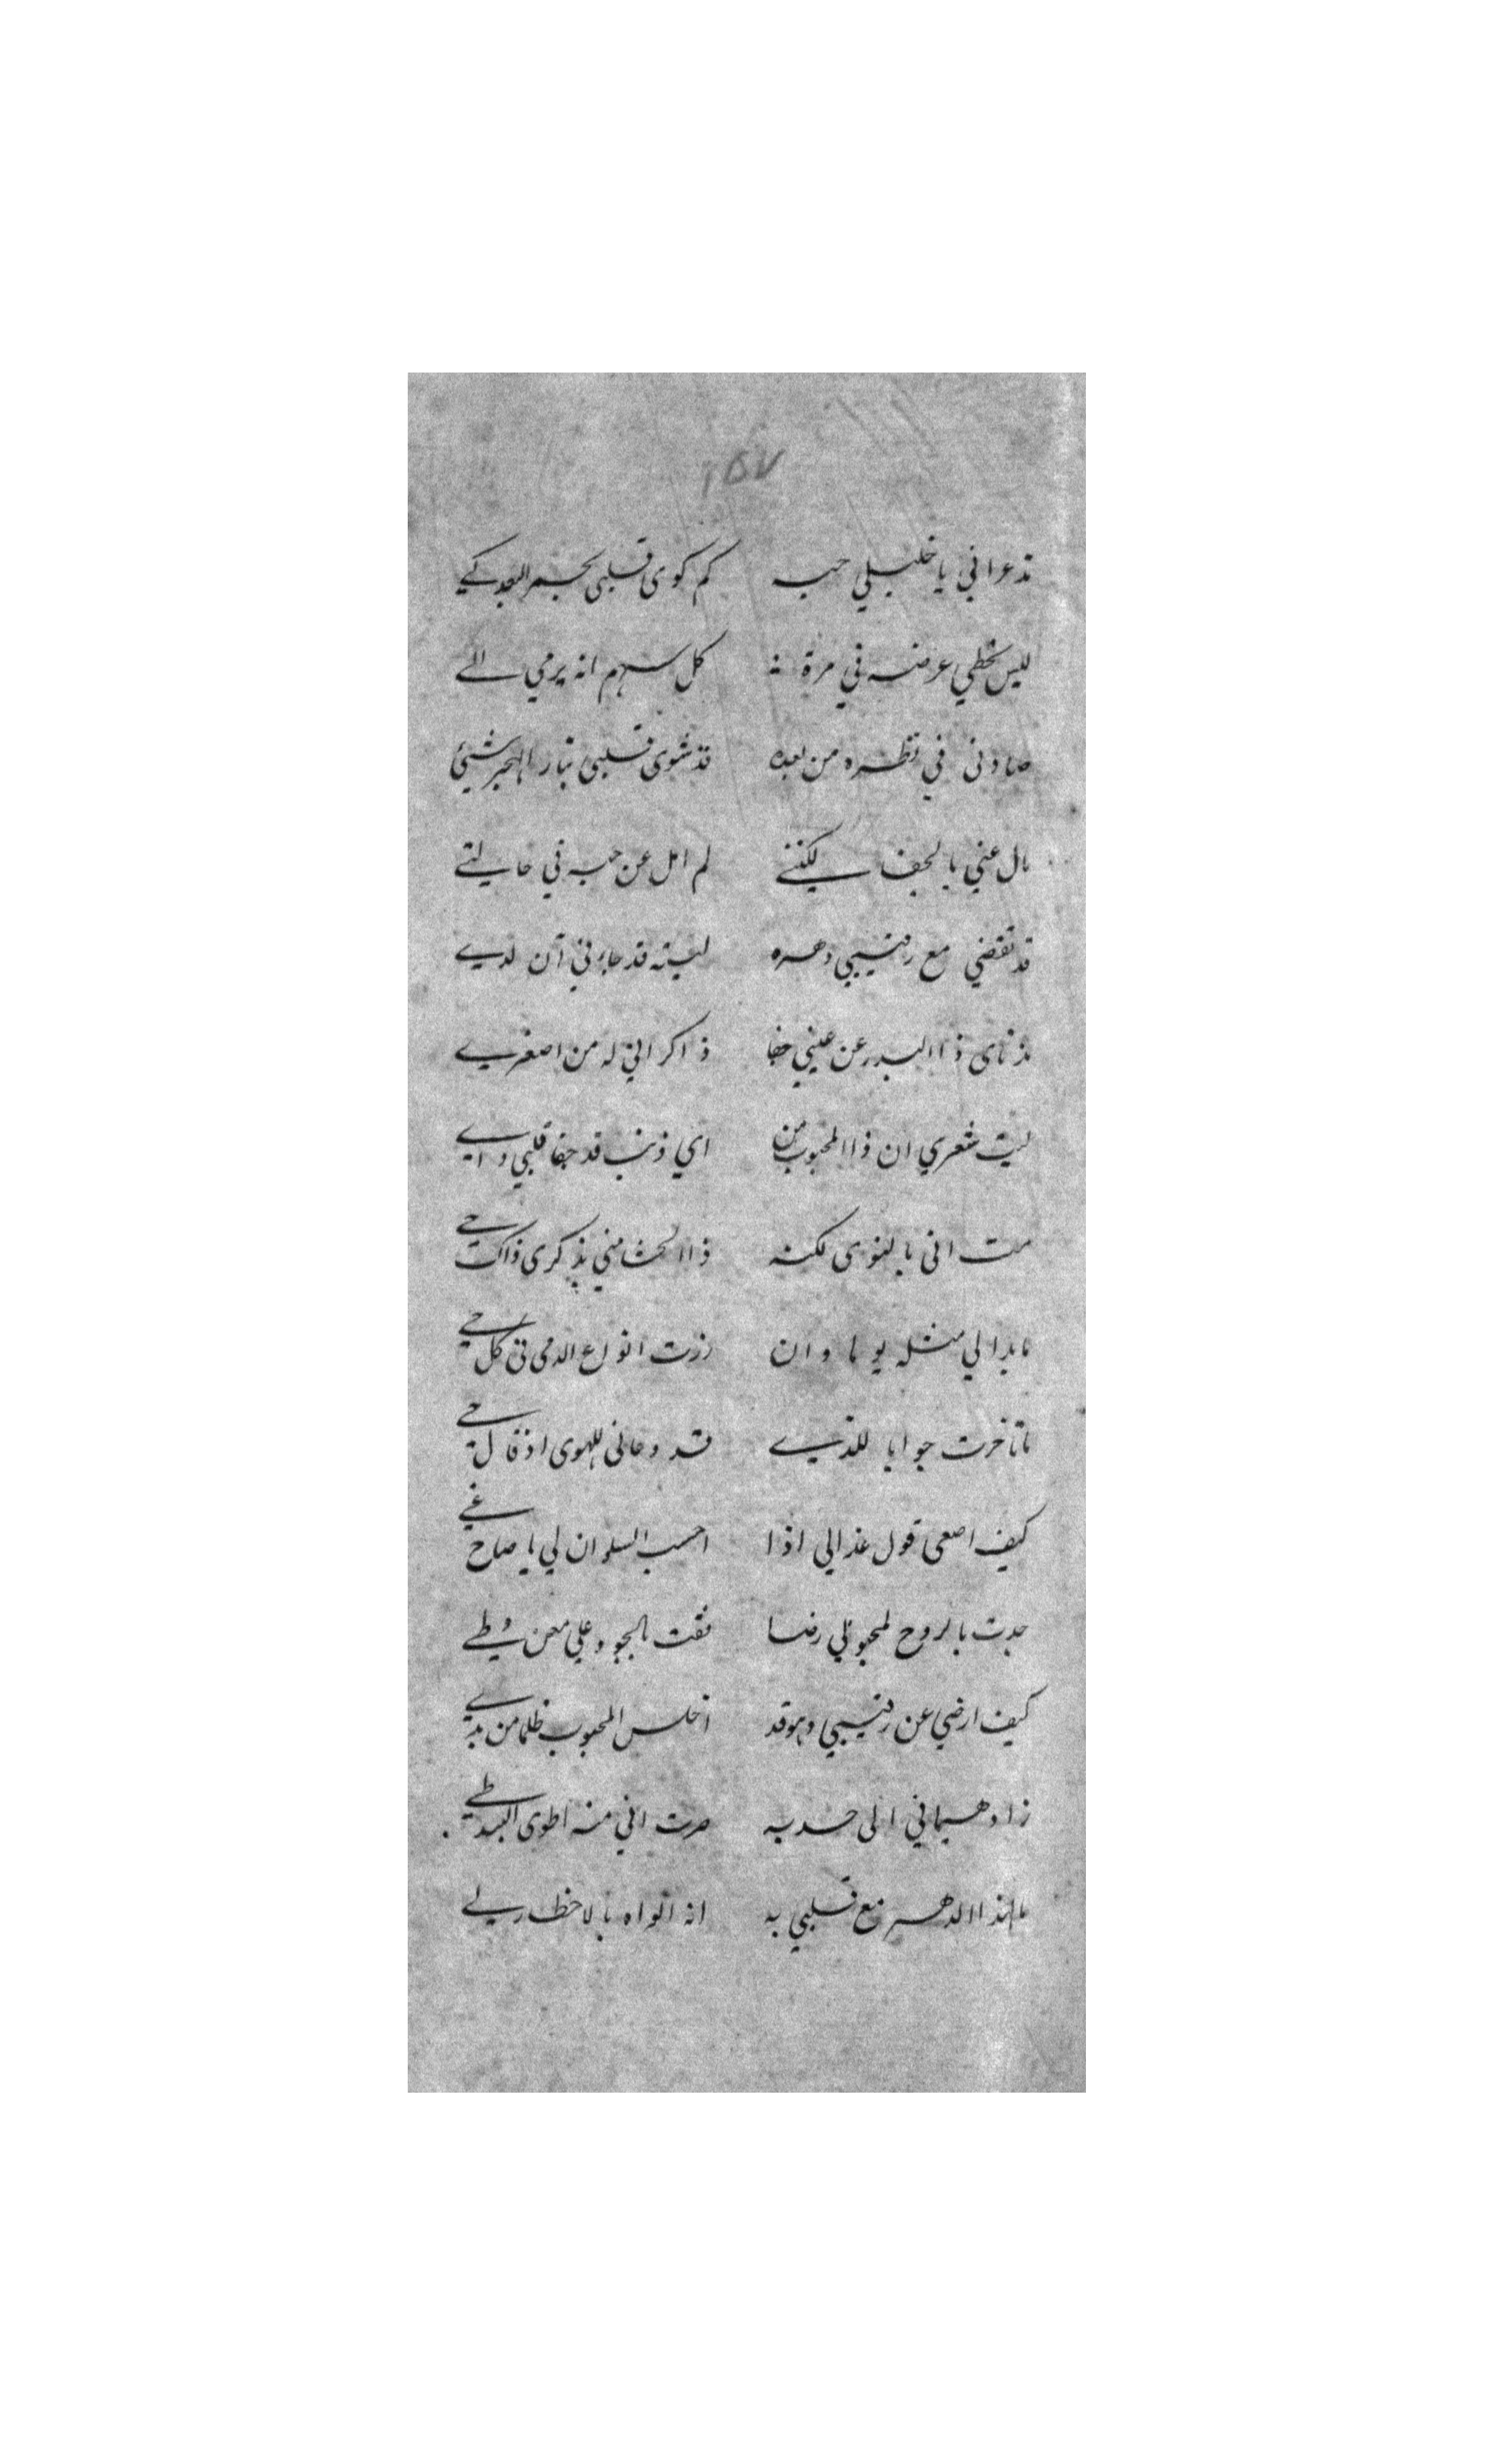 ١٥٧
مذ عراني يا خليلي حبه كم كوى قلبي بجمر البعد كي
ليس يخطي عرضه في مرة كل سهم انه يرمي الي
صادني في نظره من بعده قد شوى قلبي بنار الهجر شيئ
مال عني بالجفا لكنني لم امل عن حبه في حالتي
قد تقضي مع رقيبي دهره ليته قد جاءني آن لدي
مذ ناى ذا البدر عن عيني جفا ذاكر اني له من اصغري
ليت شعري ان ذا المحبوب من اي ذنب قد جفا قلبي واي
مت اني بالنوى لكنه ذا الحشا مني بذكرى ذاك حي
ما بدا لي مثله يوما وان زرت انواع الدمى في كل حي
ما تاخرت جوابا للذي قد دعاني للهوى اذ قال حي
كيف اصغى قول عذالي اذا احسب السلوان لي يا صاح غي
جدت بالروح لمحبوبي رضا فقت بالجود علي معن وطي
كيف ارضي عن رقيبي وهو قد اخلس المحبوب ظلما من يدي
زاد هيماني الى حد به صرت اني منه اطوى البيد طي
ما لهذا الدهر مع قلبي به انه الواه بالاحظار لي